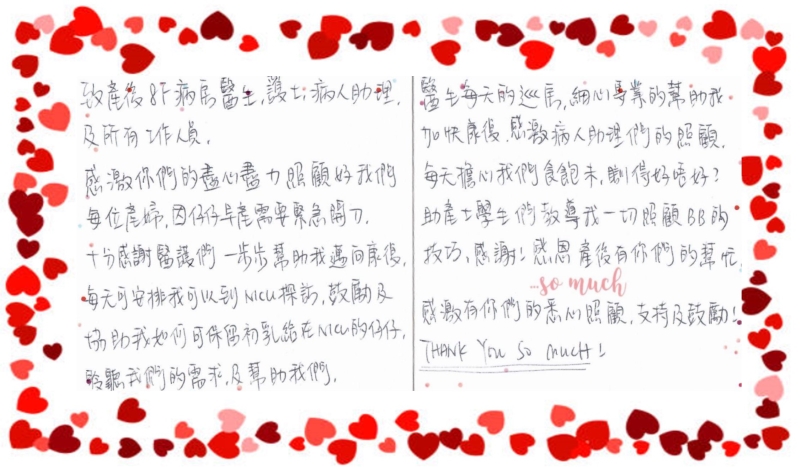 致產後8F病房醫生,護士,病人助理,
及所有工作人員.
感激你們的盡心盡力照顧好我們
每位產婦,因仔仔早產需要緊急開刀.
十分感謝醫護們一步步幫助我邁向康復.
每天可安排我可以到NICU探訪,鼓勵及
協助我如何可保留初乳給在NICU的仔仔.
聆聽我們的需求,及幫助我們.
醫生每天的巡房,細心專業的幫助我
加快康復.感激病人助理們的照顧.
每天擔心我們食飽未,瞓得好唔好?
助產士學生們教導我一切照顧BB的
技巧,感謝!感恩產後有你們的幫忙.
...so much
感激有你們的悉心照顧,支持及鼓勵!
THANK YOU SO MUCH!